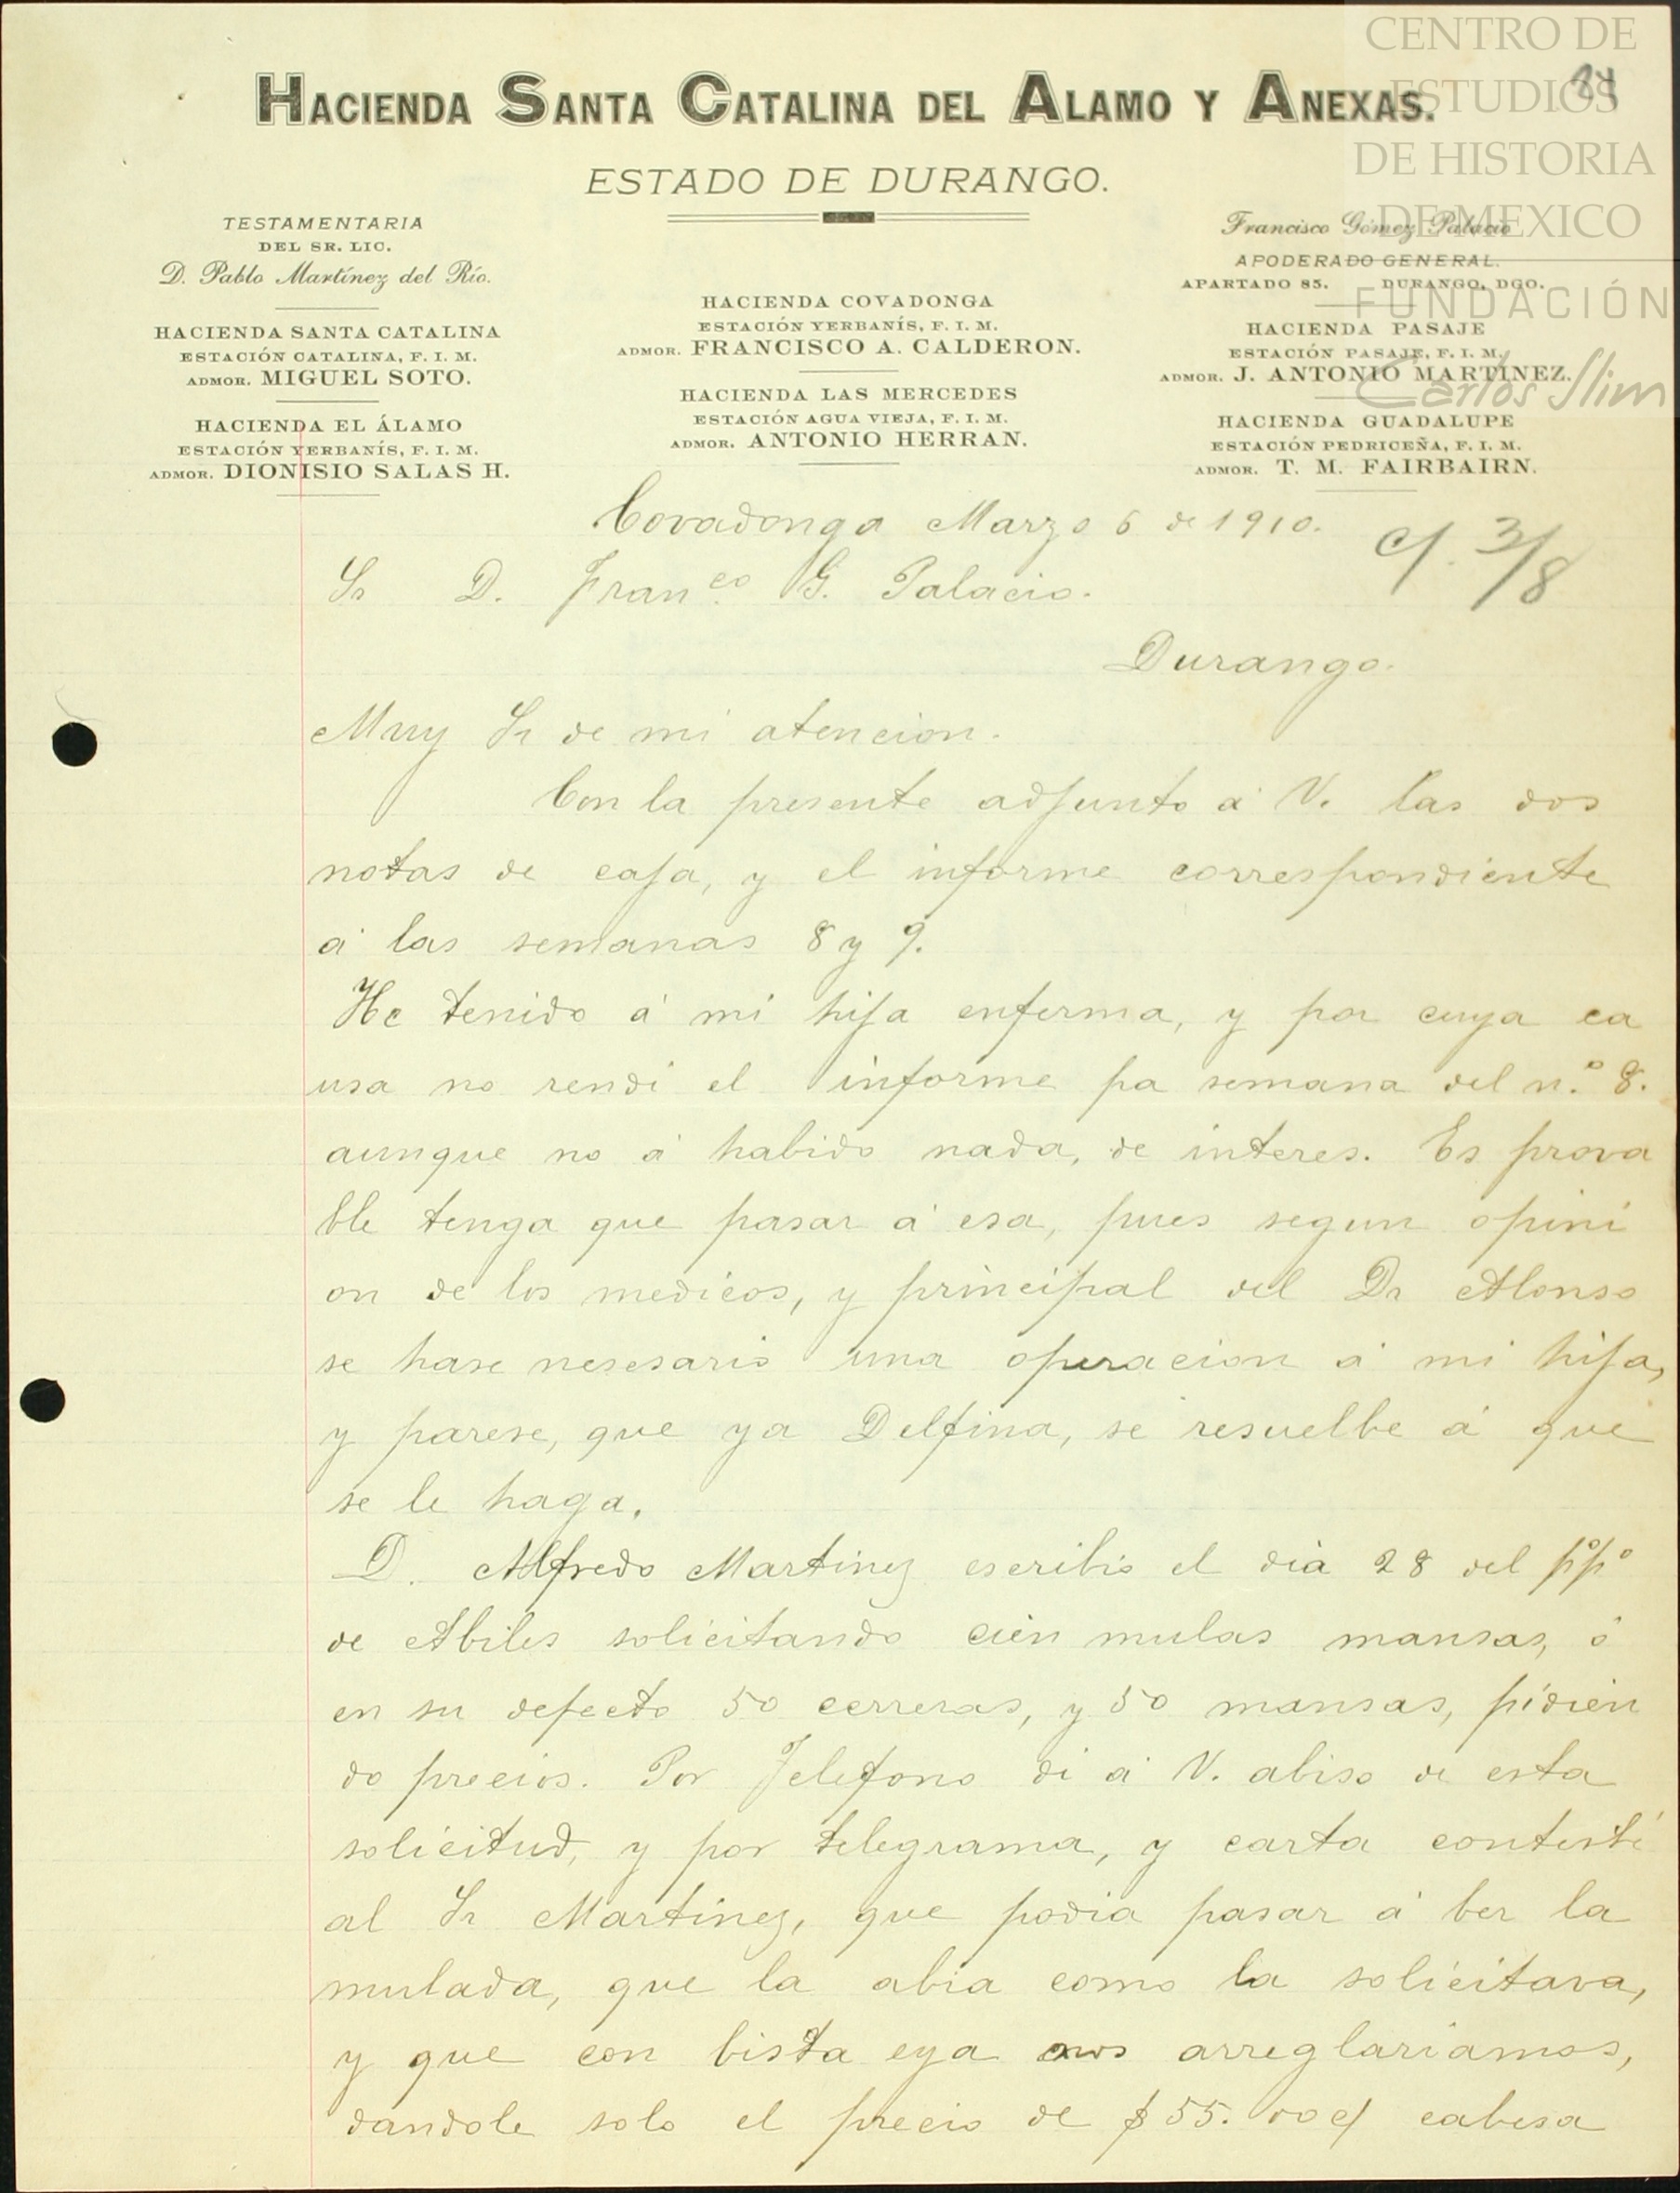 CENTRO DE
ESTUDIOS
DE HISTORIA
DE MEXICO
FUNDACIÓN
Carlos Slim
84
HACIENDA SANTA CATALINA DEL ALAMO Y ANEXAS.
ESTADO DE DURANGO.
TESTAMENTARIA
DEL SR. LIC.
D. Pablo Martínez del Río.
HACIENDA SANTA CATALINA
ESTACIÓN CATALINA, F. I. M.
ADMOR. MIGUEL SOTO.
HACIENDA EL ÁLAMO
ESTACIÓN YERBANÍS, F. I. M.
ADMOR. DIONISIO SALAS H.
HACIENDA COVADONGA
ESTACIÓN YERBANÍS, F. I. M.
ADMOR. FRANCISCO A. CALDERON.
HACIENDA LAS MERCEDES
ESTACIÓN AGUA VIEJA, F. I. M.
ADMOR. ANTONIO HERRAN.
Francisco Gómez Palacio
APODERADO GENERAL.
APARTADO 85. DURANGO, DGO.
HACIENDA PASAJE
ESTACIÓN PASAJE, F. I. M.
ADMOR. J. ANTONIO MARTÍNEZ.
HACIENDA GUADALUPE
ESTACIÓN PEDRICEÑA, F. I. M.
ADMOR. T. M. FAIRBAIRN.
Covadonga Marzo 6 de 1910.
c/. 3/8
Sr D. Franco G. Palacio.
Durango.
Muy Sr de mi atencion.
Con la presente adjunto á V. las dos
notas de caja, y el informe correspondiente
á las semanas 8 y 9.
He tenido á mi hija enferma, y por cuya ca
usa no rendi el informe pa semana del n.º 8.
aunque no á habido nada, de interes. Es prova
ble tenga que pasar á esa, pues segun opini
on de los medicos, y principal del Dr Alonso
se hase nesesario una operacion á mi hija,
y parese, que ya Delfina, se resuelbe á que
se le haga.
D. Alfredo Martinez escribió el dia 28 del pºpº
de Abiles solicitando cien mulas mansas, ó
en su defecto 50 cerreras, y 50 mansas, pidien
do precios. Por Telefono di á V. abiso de esta
solicitud, y por telegrama, y carta contesté
al Sr Martinez, que podia pasar á ber la
mulada, que la abia como la solicitava,
y que con bista eya nos arreglariamos,
dandole solo el precio de $55.00 c/ cabesa